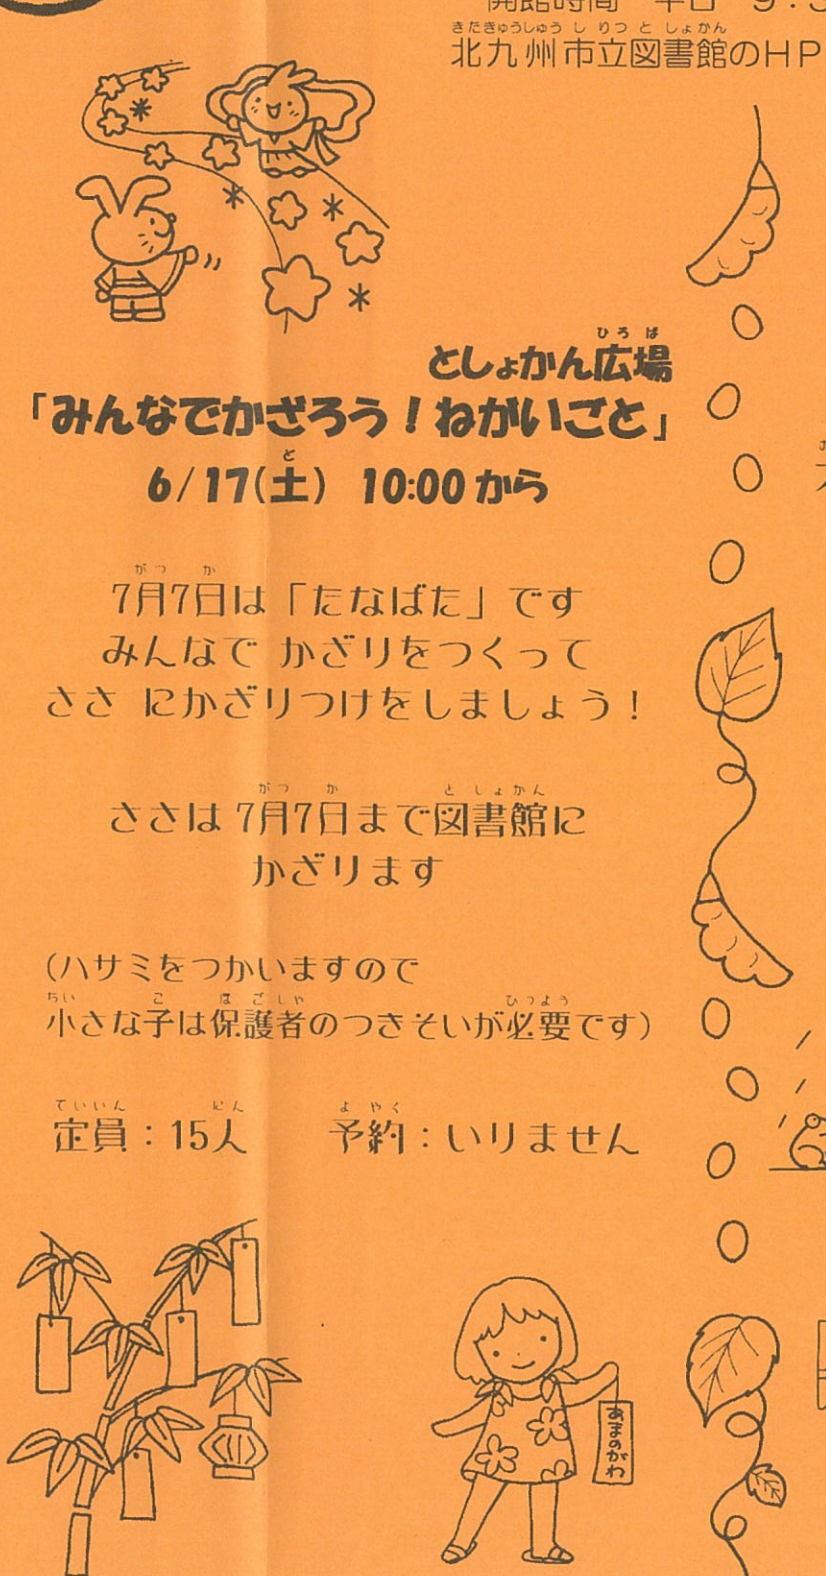 開館時間 平日 9:
北九州市立図書館のHP
としょかん広場
「みんなでかざろう！ねがいごと」
6/17(土) 10:00から
7月7日は「たなばた」です
みんなで かざりをつくって
ささ にかざりつけをしましょう！
ささは7月7日まで図書館に
かざります
(ハサミをつかいますので
小さな子は保護者のつきそいが必要です)
定員：15人 予約：いりません
あまのがわ